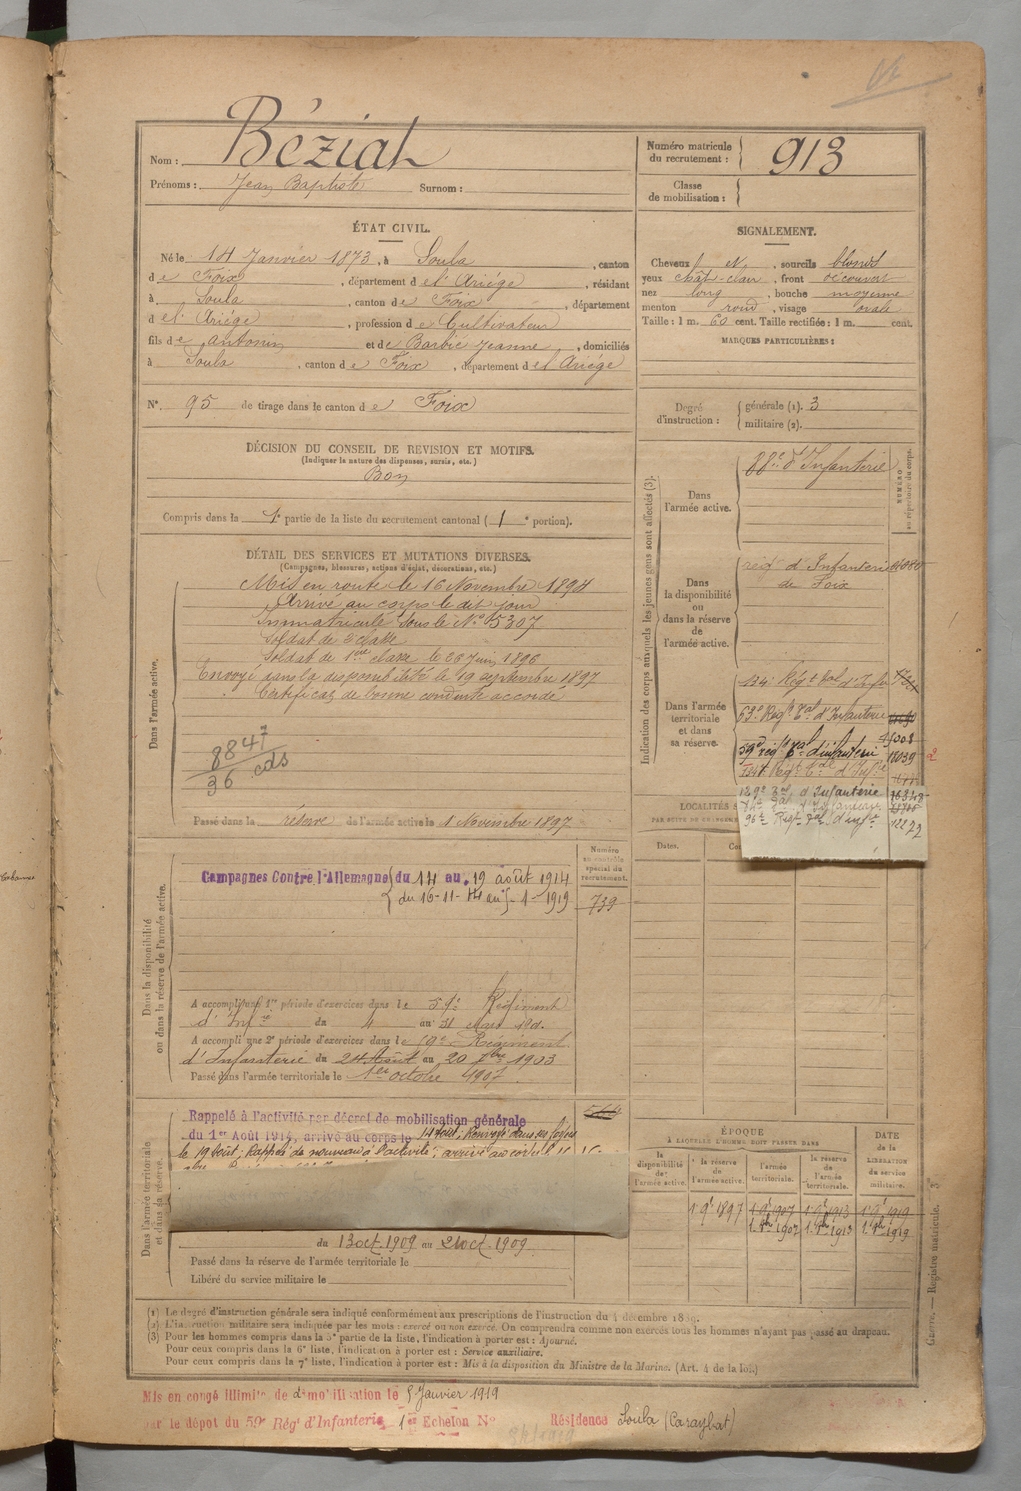 Nom : Béziat
Prénoms : Jean Baptiste Surnom :
Numéro matricule du recrutement : 913
Classe de mobilisation :
ÉTAT CIVIL.
Né le 14 Janvier 1873, à Soula, canton
de Foix, département de l'Ariége, résidant
à Soula, canton de Foix, département
de l'Ariége, profession de Cultivateur
fils de Antonin et de Barbie Jeanne, domiciliés
à Soula, canton de Foix, département de l'Ariége
N° 95 de tirage dans le canton de Foix
SIGNALEMENT.
Cheveux N, sourcils blonds
yeux chât-clair, front découvert
nez long, bouche moyenne
menton rond, visage ovale
Taille : 1 m. 60 cent. Taille rectifiée : 1 m. cent.
MARQUES PARTICULIÈRES :
Degré d'instruction : générale (1). 3
militaire (2).
DÉCISION DU CONSEIL DE REVISION ET MOTIFS.
(Indiquer la nature des dispenses, sursis, etc.)
Bon
Compris dans la 1e partie de la liste du recrutement cantonal (1e portion).
DÉTAIL DES SERVICES ET MUTATIONS DIVERSES.
(Campagnes, blessures, actions d'éclat, décorations, etc.)
Dans l'armée active.
Mis en route le 16 Novembre 1894
Arrivé au corps le dit jour
Immatriculé sous le N° 5307
Soldat de 2e classe
Soldat de 1ère classe le 26 Juin 1896
Envoyé dans la disponibilité le 19 septembre 1897
Certificat de bonne conduite accordé
8847
36 cds
Passé dans la réserve de l'armée active le 1 Novembre 1897
Indication des corps auxquels les jeunes gens sont affectés (3).
NUMÉRO au répertoire du corps.
Dans l'armée active.
88e d'Infanterie
Dans la disponibilité ou dans la réserve de l'armée active.
régt d'Infanterie
de Foix
Dans l'armée territoriale et dans sa réserve.
134e Régt tal d'Infie
63e Régt Tal d'Infanterie
59e régt Tal d'infanterie 18039
134e Régt Tal d'Infie
129e Tal d'Infanterie 16348
96e Régt Tal d'Infie 12272
LOCALITÉS
Dates.
Dans la disponibilité ou dans la réserve de l'armée active.
Numéro au contrôle spécial du recrutement.
739
Campagnes Contre l'Allemagne du 14 au 19 août 1914
du 16-11-14 au 5-1-1919
A accompli une 1re période d'exercices dans le 59e Régiment
d'Infie du 4 au 31 Mars 190
A accompli une 2e période d'exercices dans le 59e Régiment
d'Infanterie du 24 Août au 20 7bre 1903
Passé dans l'armée territoriale le 1er octobre 1907
Dans l'armée territoriale et dans sa réserve.
Rappelé à l'activité par décret de mobilisation générale
du 1er Août 1914, arrivé au corps le 14 août, Renvoyé dans ses foyers
le 19 août, Rappelé de nouveau à l'activité, arrivé au corps le
du 13 oct. 1909 au 21 oct. 1909
Passé dans la réserve de l'armée territoriale le
Libéré du service militaire le
ÉPOQUE
A LAQUELLE L'HOMME DOIT PASSER DANS
la disponibilité de l'armée active.
la réserve de l'armée active.
l'armée territoriale.
la réserve de l'armée territoriale.
DATE de la LIBÉRATION du service militaire.
1 9e 1897 1 9e 1907 1 9e 1913 1 9e 1919
1. 8b 1907 1. 8b 1913 1. 8b 1919
(1) Le degré d'instruction générale sera indiqué conformément aux prescriptions de l'instruction du 4 décembre 1889.
(2) L'instruction militaire sera indiquée par les mots : exercé ou non exercé. On comprendra comme non exercés tous les hommes n'ayant pas passé au drapeau.
(3) Pour les hommes compris dans la 5e partie de la liste, l'indication à porter est : Ajourné.
Pour ceux compris dans la 6e liste, l'indication à porter est : Service auxiliaire.
Pour ceux compris dans la 7e liste, l'indication à porter est : Mis à la disposition du Ministre de la Marine. (Art. 4 de la loi.)
Guerre. — Registre matricule. 3
Mis en congé illimité de démobilisation le 5 Janvier 1919
par le dépôt du 59e Régt d'Infanterie 1er Echelon N° Résidence Soula (Caraybat)